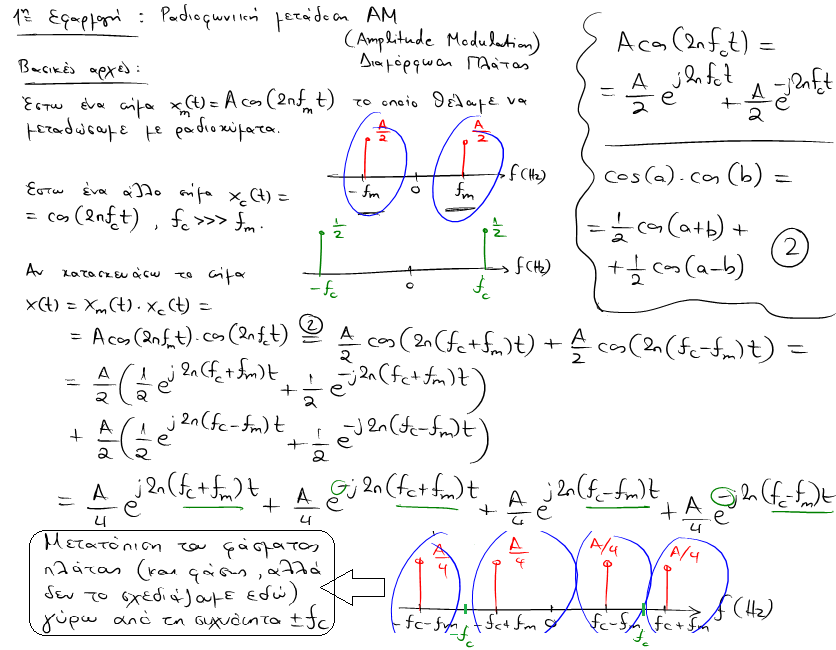 1η Εφαρμογή : Ραδιοφωνική μετάδοση AM
(Amplitude Modulation)
Διαμόρφωση Πλάτους
Βασικές αρχές :
Έστω ένα σήμα x_m(t) = A cos(2πf_m t) το οποίο θέλουμε να
μεταδώσουμε με ραδιοκύματα.
A/2 A/2
-f_m 0 f_m f(Hz)
Έστω ένα άλλο σήμα x_c(t) =
= cos(2πf_c t) , f_c >>> f_m.
1/2 1/2
-f_c 0 f_c f(Hz)
Αν κατασκευάσω το σήμα
x(t) = x_m(t) · x_c(t) =
= A cos(2πf_m t) · cos(2πf_c t) =(2) A/2 cos(2π(f_c+f_m)t) + A/2 cos(2π(f_c-f_m)t) =
= A/2 (1/2 e^{j2π(f_c+f_m)t} + 1/2 e^{-j2π(f_c+f_m)t})
+ A/2 (1/2 e^{j2π(f_c-f_m)t} + 1/2 e^{-j2π(f_c-f_m)t})
= A/4 e^{j2π(f_c+f_m)t} + A/4 e^{-j2π(f_c+f_m)t} + A/4 e^{j2π(f_c-f_m)t} + A/4 e^{-j2π(f_c-f_m)t}
A cos(2πf_c t) =
= A/2 e^{j2πf_c t} + A/2 e^{-j2πf_c t}
cos(a) · cos(b) =
= 1/2 cos(a+b) +
+ 1/2 cos(a-b)
2
Μετατόπιση του φάσματος
πλάτους (και φάσης, αλλά
δεν το σχεδιάζουμε εδώ)
γύρω από τη συχνότητα ±f_c
A/4 A/4 A/4 A/4
-f_c-f_m -f_c -f_c+f_m 0 f_c-f_m f_c f_c+f_m f(Hz)